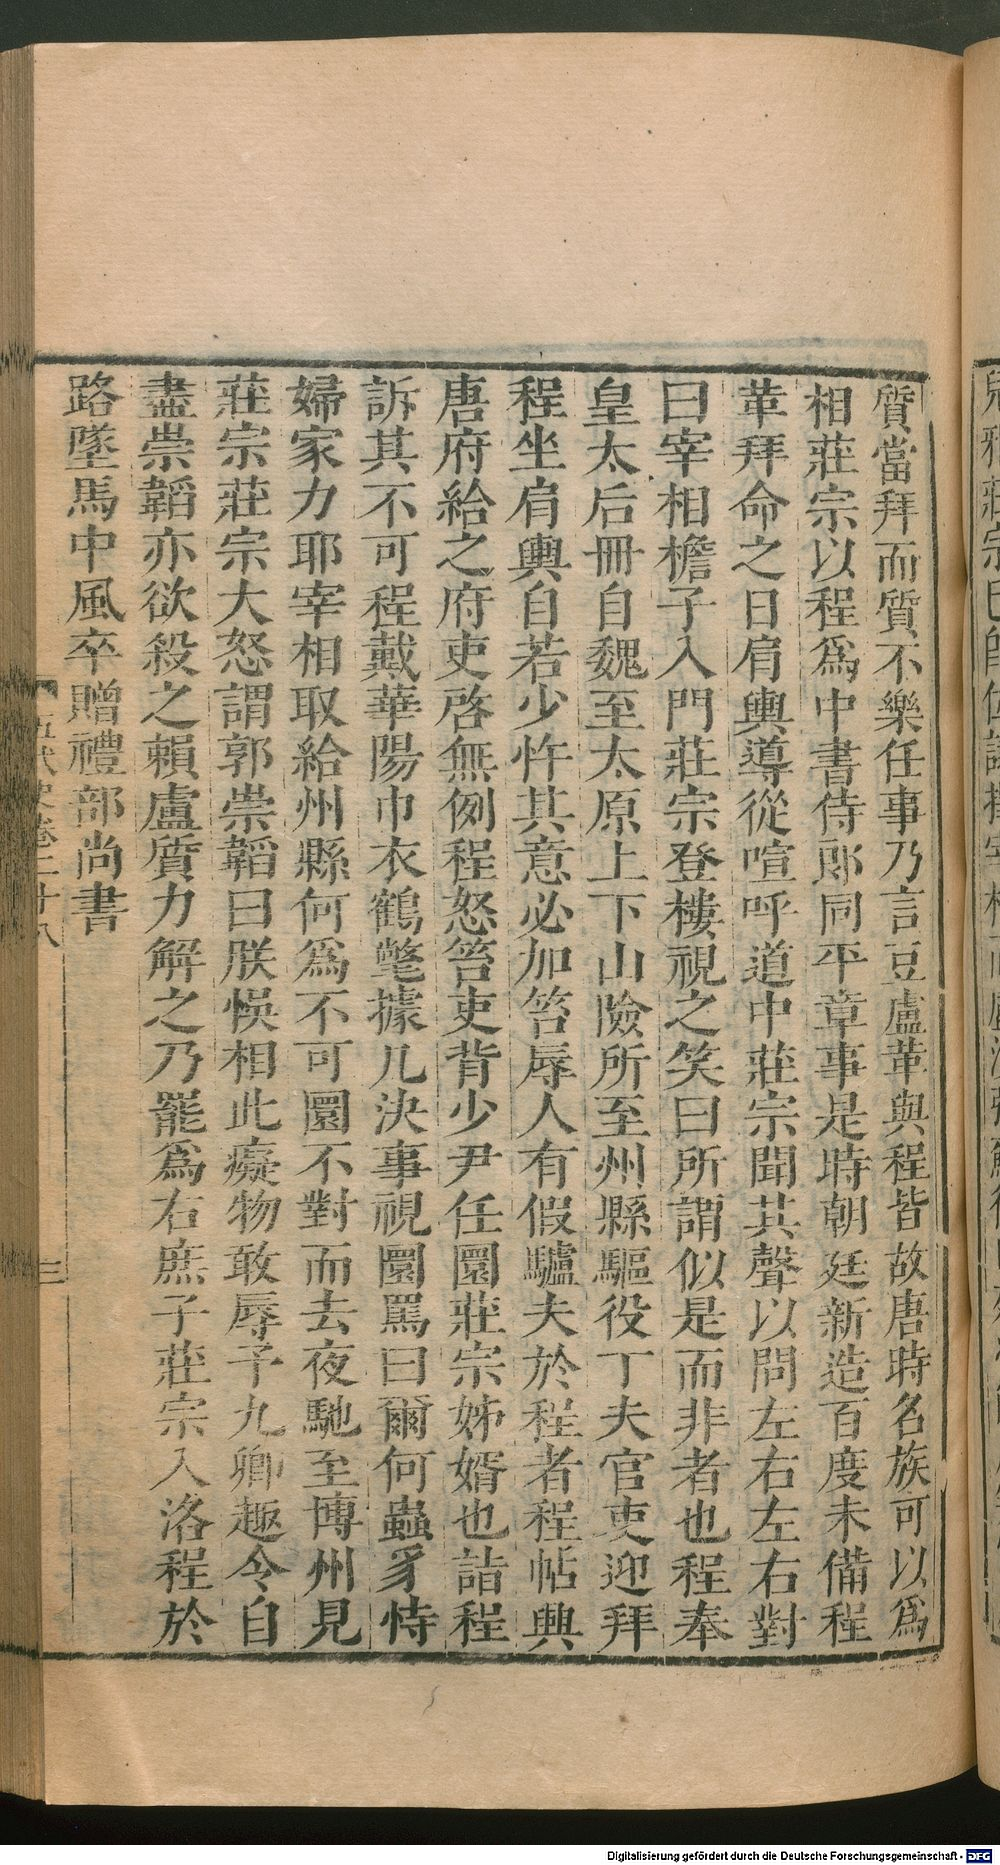 質當拜而質不樂任事乃言豆盧革與程皆故唐時名族可以爲
相莊宗以程爲中書侍郎同平章事是時朝廷新造百度未備程
革拜命之日肩輿導從喧呼道中莊宗聞其聲以問左右左右對
曰宰相檐子入門莊宗登樓視之笑曰所謂似是而非者也程奉
皇太后冊自魏至太原上下山險所至州縣驅役丁夫官吏迎拜
程坐肩輿自若少忤其意必加笞辱人有假驢夫於程者程帖興
唐府給之府吏啓無例程怒笞吏背少尹任圜莊宗姊婿也詣程
訴其不可程戴華陽巾衣鶴氅據几決事視圜罵曰爾何蟲豸恃
婦家力耶宰相取給州縣何爲不可圜不對而去夜馳至博州見
莊宗莊宗大怒謂郭崇韜曰朕悞相此癡物敢辱予九卿趣令自
盡崇韜亦欲殺之賴盧質力解之乃罷爲右庶子莊宗入洛程於
路墜馬中風卒贈禮部尚書
五代史卷二十八
三
Digitalisierung gefördert durch die Deutsche Forschungsgemeinschaft - DFG